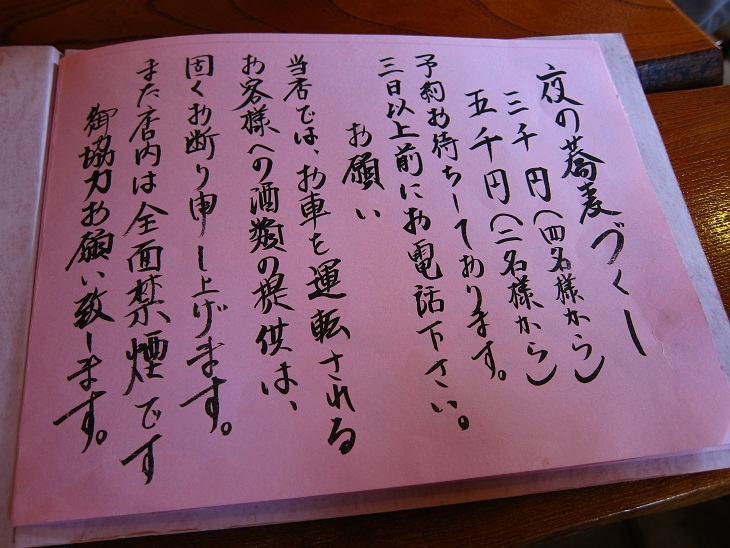 夜の蕎麦づくし
三千円（四名様から）
五千円（二名様から）
予約お待ちしております。
三日以上前にお電話下さい。
お願い
当店では、お車を運転される
お客様への酒類の提供は、
固くお断り申し上げます。
また店内は全面禁煙です
御協力お願い致します。